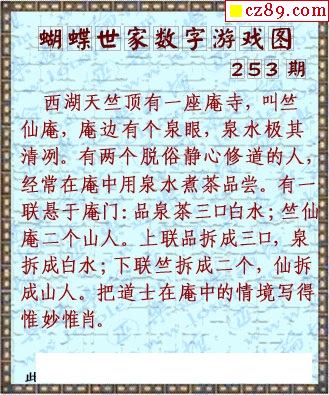 cz89.com
蝴蝶世家数字游戏图
253 期
西湖天竺顶有一座庵寺，叫竺
仙庵，庵边有个泉眼，泉水极其
清冽。有两个脱俗静心修道的人，
经常在庵中用泉水煮茶品尝。有一
联悬于庵门：品泉茶三口白水；竺仙
庵二个山人。上联品拆成三口，泉
拆成白水；下联竺拆成二个，仙拆
成山人。把道士在庵中的情境写得
惟妙惟肖。
此